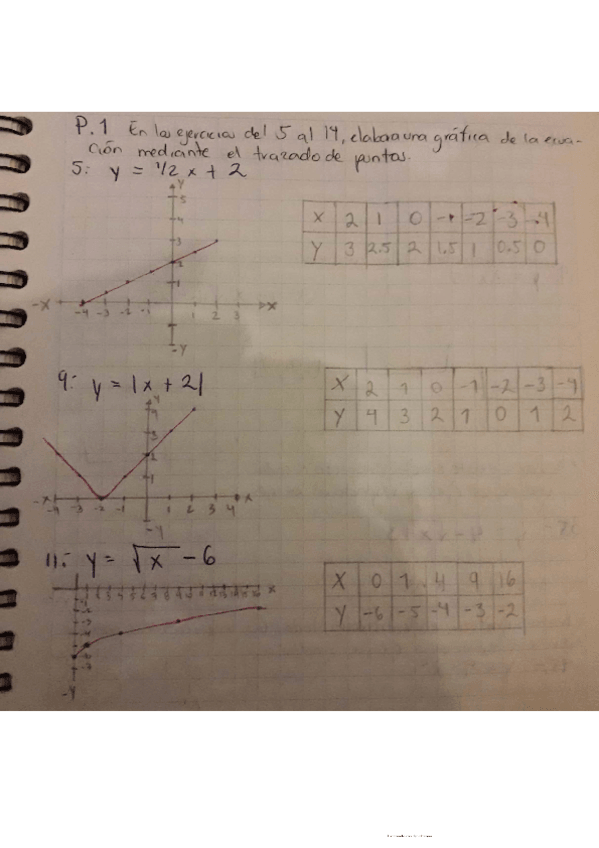 P.1 En los ejercicios del 5 al 14, elabora una gráfica de la ecua-
ción mediante el trazado de puntos.
5: y = 1/2 x + 2
Y
5
4
3
2
1
-X -4 -3 -2 -1 1 2 3 X
-Y
X 2 1 0 -1 -2 -3 -4
Y 3 2.5 2 1.5 1 0.5 0
9: y = |x + 2|
Y
4
3
2
1
-X -4 -3 -2 -1 1 2 3 4 X
-Y
X 2 1 0 -1 -2 -3 -4
Y 4 3 2 1 0 1 2
11: y = √x - 6
X
-Y
X 0 1 4 9 16
Y -6 -5 -4 -3 -2